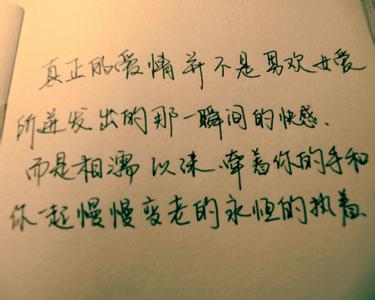 真正的爱情并不是男欢女爱
所迸发出的那一瞬间的快感、
而是相濡以沫、牵着你的手和
你一起慢慢变老的永恒的执着